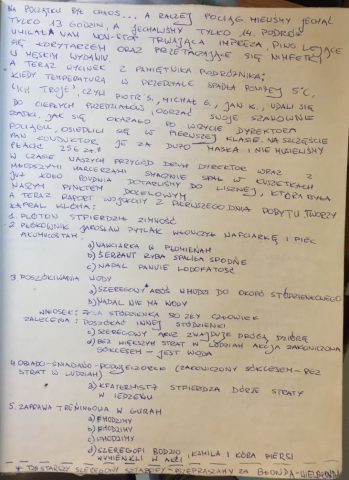 NA POCZĄTKU BYŁ CHAOS... A RACZEJ POCIĄG MIELIŚMY JECHAĆ
TYLKO 13 GODZIN, A JECHALIŚMY TYLKO 14. PODRÓŻ
UMILAŁA NAM NON-STOP TRWAJĄCA IMPREZA, PIWO LEJĄCE
SIĘ KORYTARZEM ORAZ PRZETACZAJĄCE SIĘ NIMFETKI
W MĘSKIM WYDANIU
A TERAZ WYCINEK Z PAMIĘTNIKA PODRÓŻNIKA:
KIEDY TEMPERATURA W PRZEDZIALE SPADŁA PONIŻEJ 5°C,
"ICH TROJE", CZYLI PIOTR S., MICHAŁ G., JAN K., UDALI SIĘ
DO CIEPŁYCH PRZEDZIAŁÓW OGRZAĆ SWOJE SZANOWNE
ZADKI, JAK SIĘ OKAZAŁO PO WIZYCIE DYREKTORA
POCIĄGU, OSIEDLILI SIĘ W PIERWSZEJ KLASIE. NA SZCZĘŚCIE
PAN KONDUKTOR JE ZA DUŻO MASŁA I NIE MUSIELIŚMY
PŁACIĆ 296 zł.
W CZASIE NASZYCH PRZYGÓD DRUH DYREKTOR WRAZ Z
MŁODSZYMI HARCERZAMI SMACZNIE SPAŁ W KUSZETKACH
JUŻ KOŁO POŁUDNIA DOTARLIŚMY DO LISZNEJ, KTÓRA BYŁA
NASZYM PUNKTEM DOCELOWYM.
A TERAZ RAPORT WOJSKOWY Z PIERWSZEGO DNIA POBYTU TWORZY
KAPRAL KLICHA:
1. PLOTON STFIERDZIŁ ZIMNOŚĆ
2. PÓŁKOWNIK JAROSŁAW PYTLAK WŁONCZYŁ NAFCIARKĘ I PIEC
AKUMÓSTARY:
a) NAWCIARKA W PŁOMIENIAH
b) SERŻANT RYBA SPALIŁA SPODNE
c) NADAL PANUJE LODOFATOŚĆ
3. POSZÓKIWANIA WODY
a) SZEREGOWY ARÓŚ WHODZI DO OKOPÓ STÓDZIENKOWEGO
b) NADAL NIE MA WODY
WNIOSEK:
ZALECENIA: POSZÓKAĆ INNEJ STÓDZIENKI
c) SZEREGOWY ARZ ZNAJDUJE DROGĄ DZIÓRĘ
d) BEZ WIĘKSZYH STRAT W LÓDZIAH AKCJA ZAKOŃCZONA
SÓKCESEM – JEST WODA
4. OBADO-ŚNIADANO-PODWJECZOREK (ZAKOŃCZONY SÓKCESEM – BEZ
STRAT W LÓDZIAH)
a) KFATERMISTŻ STFIERDZA DÓRZE STRATY
W JEDZENIU
5. ZAPRAWA TRÉNINGOWA W GÓRAH
a) FHODZIMY
b) FHODZIMY
c) FHODZIMY
d) SZEREGOFI BODZIO, KAMILA I KÓBA PIERSI